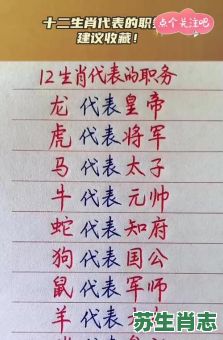 十二生肖代表的职务
点个关注吧
建议收藏！
12生肖代表的职务
龙 代表皇帝
虎 代表将军
马 代表太子
牛 代表元帅
蛇 代表知府
狗 代表国公
鼠 代表军师
羊 代表
苏生肖志